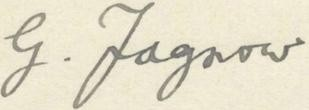 G. Jagnow